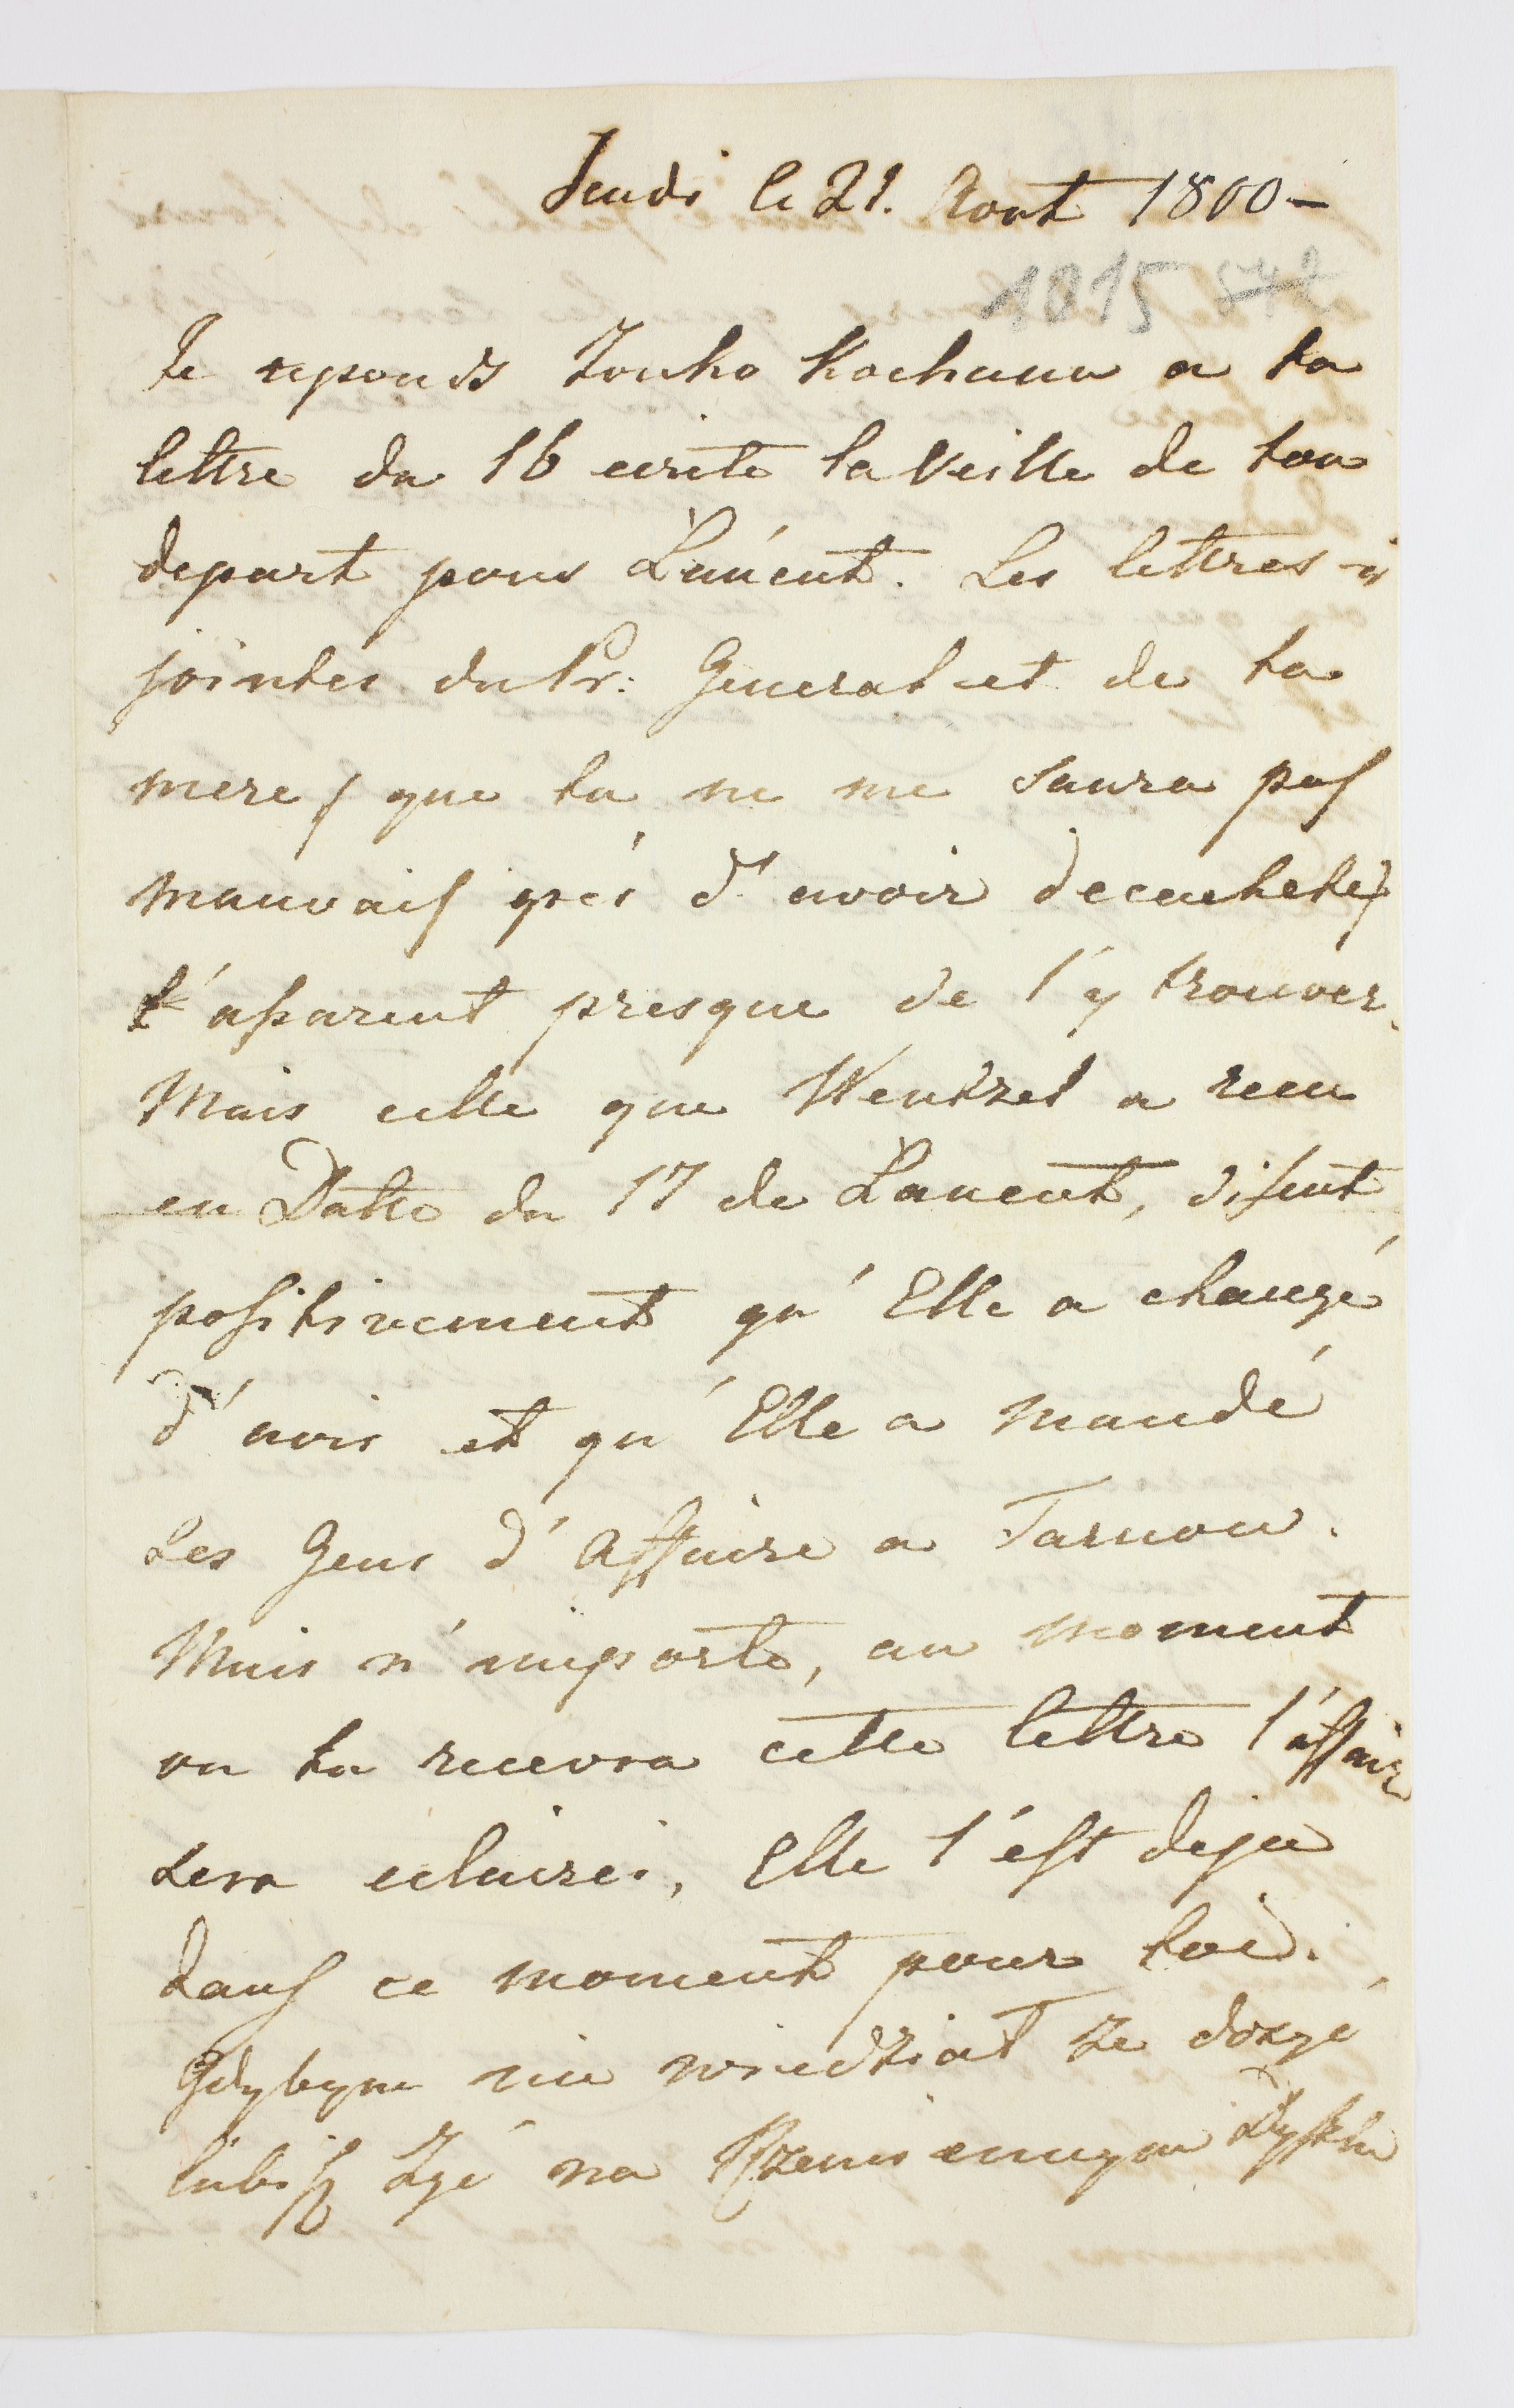 Jeudi le 21. Aout 1800 –
1815 542
Je reponds Zonko Kochana a ta
lettre du 16 ecrite la Veille de ton
depart pour Lancut. Les lettres ci
jointes du Pr: General et de ta
mere / que tu ne me saura pas
mauvais gré d'avoir decacheté /
t'assurent presque de l'y trouver.
Mais celle que Wentzel a recu
en Datte du 17 de Lancut, disent
positivement qu'Elle a changé
d'avis et qu'Elle a mandé
Les Gens d'Affaire a Tarnow.
Mais n'importe, au moment
ou tu recevra cette lettre l'affaire
sera eclairci, Elle l'est deja
dans ce moment pour toi.
Gdybym nie wiedział ze dosyć
lubisz żyć na